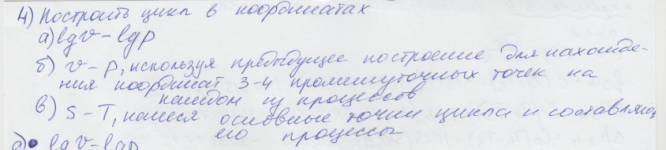 4) Построить цикл в координатах
а) lgv – lgp
б) v – p, используя предыдущее построение для нахожде-
ния координат 3-4 промежуточных точек на
каждом из процессов
в) S – T, нанеся основные точки цикла и составляющ
его процессы
а) lgv – lgp